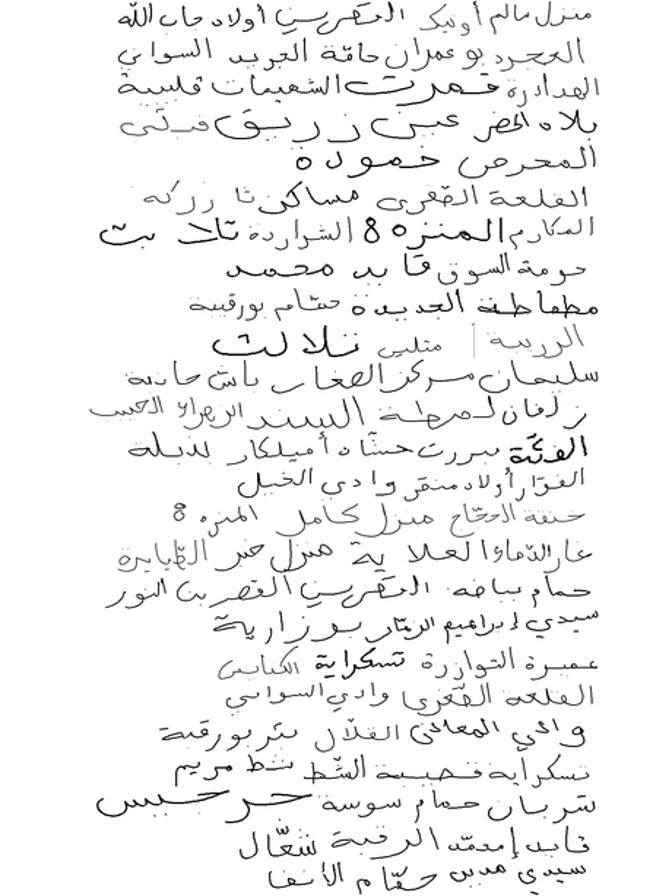 منزل سالم أوتيك القصرين أولاد جاب الله
العجرد بو عمران حامة الجريد السواني
الهدادرة قمرت الشعيمات قليبية
بلاد الحضر عين زريق
المعرض حمودة
القلعة الصّغرى مساكن تازركة
المكارم المنزه 8 الشراردة تلابت
حومة السوق قايد محمد
مطماطة الجديدة حمّام بورقيبة
الزريبة تلالت
سليمان مركز الصغار باش حانبة
زلفان لمرطة السند الزهراء الحبيب
بنزرت حشّاد أميلكار
الفوّار أولاد منقر وادي الخيل
خنقة الحجّاج منزل كامل المنزه 8
غار الدّماء العلاية منزل حر
حمام بياضة القصرين القصر بن النور
سيدي إبراهيم الزهّار بوزارية
عميرة التوازرة تسكراية الكنايس
القلعة الصّغرى وادي السواني
وادي المعادن الفلال بئر بورقبة
تسكراية قصيبة الشّط شط مريم
شربان حمام سوسة جرجيس
قايد إمحمّد الرقبة شعّال
سيدي مدين حمّام الأنف